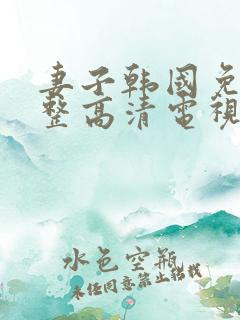 妻子韩國免
整高清電視
水色空瓶
未经同意禁止搭载